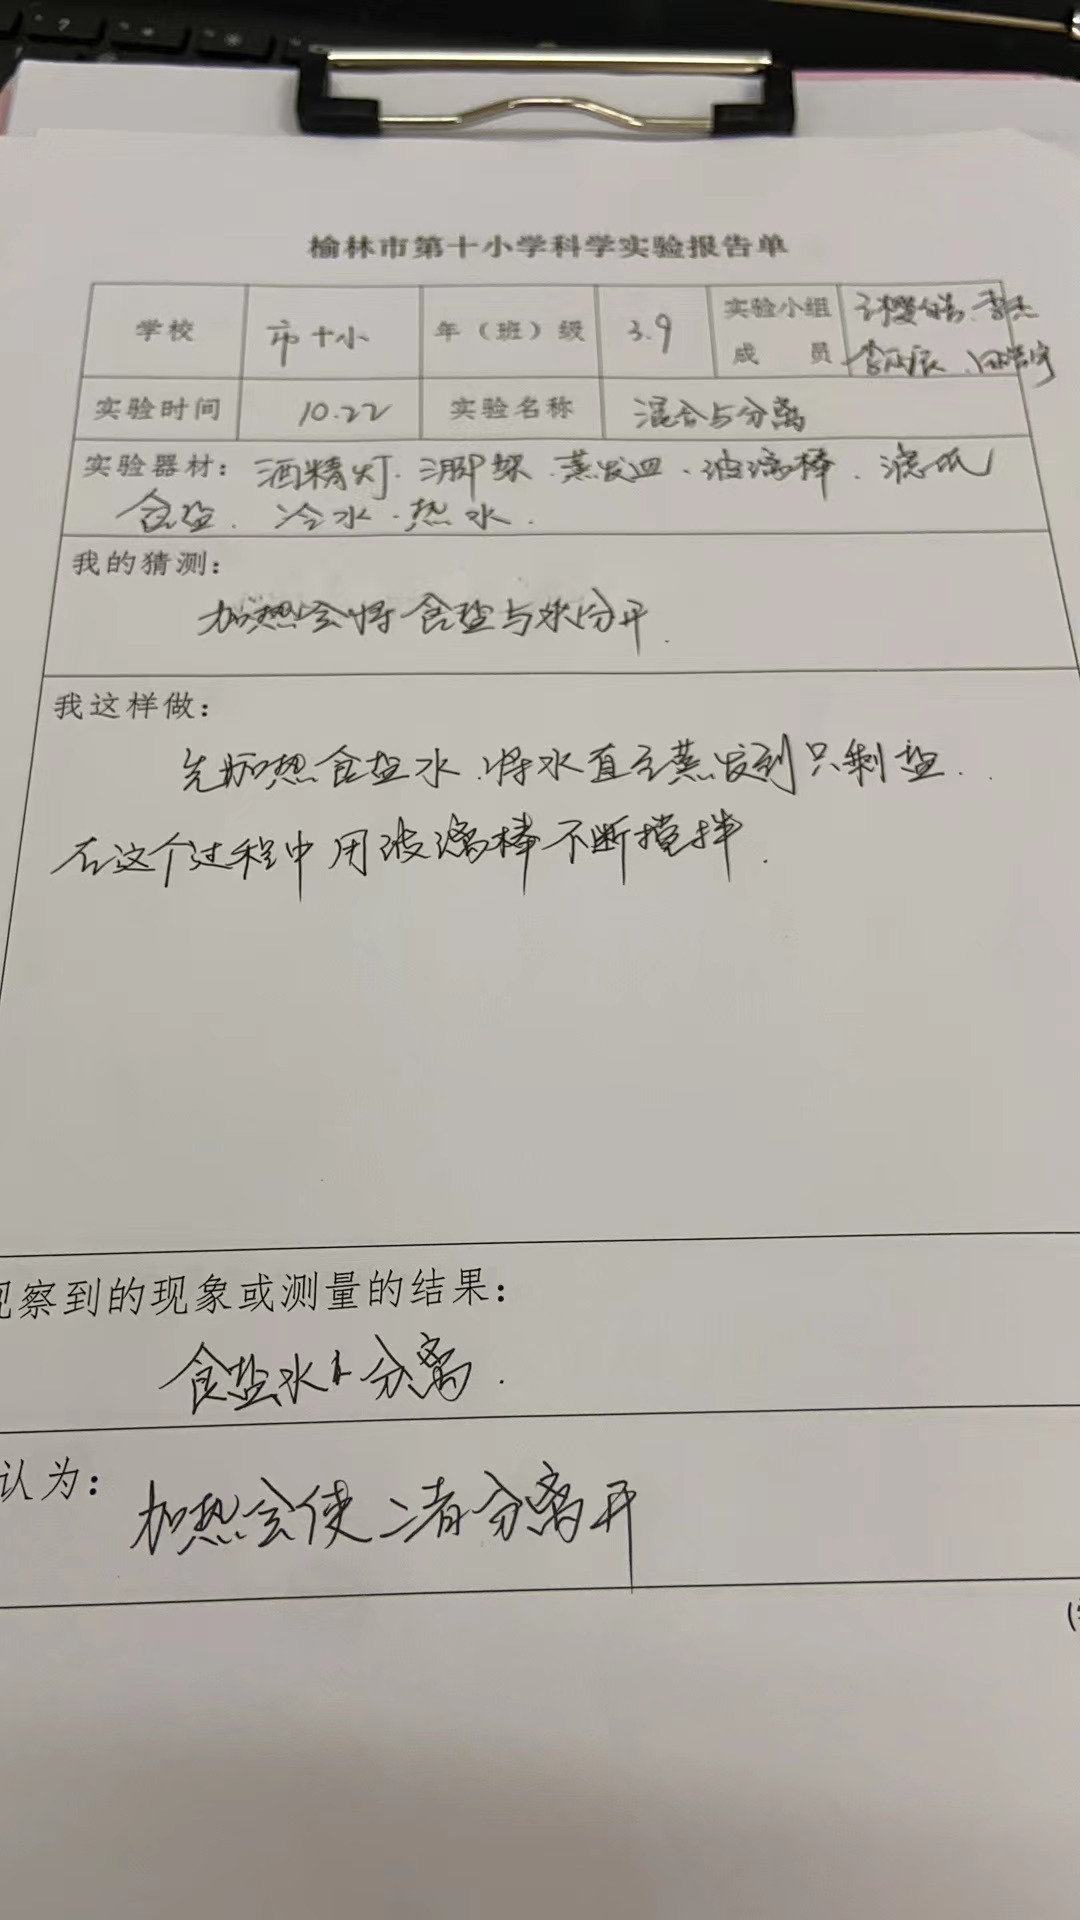 榆林市第十小学科学实验报告单
学校 市十小 年（班）级 3.9 实验小组成员
实验时间 10.22 实验名称 混合与分离
实验器材：酒精灯.三脚架.蒸发皿、玻璃棒、滤纸
食盐. 冷水.热水.
我的猜测：
加热会将食盐与水分开.
我这样做：
先加热食盐水.将水直至蒸发到只剩盐.
在这个过程中用玻璃棒不断搅拌.
观察到的现象或测量的结果：
食盐水 分离.
认为：加热会使二者分离开